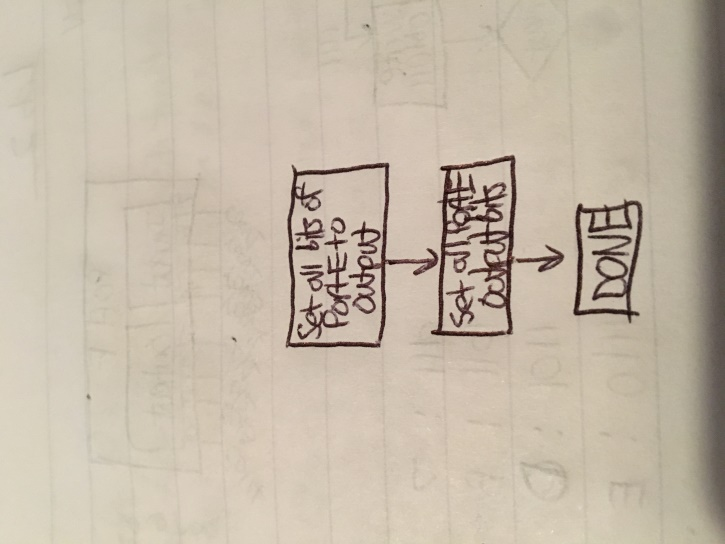 Set all bits of
PORTE to
output
Set all PORTE
output bits
DONE